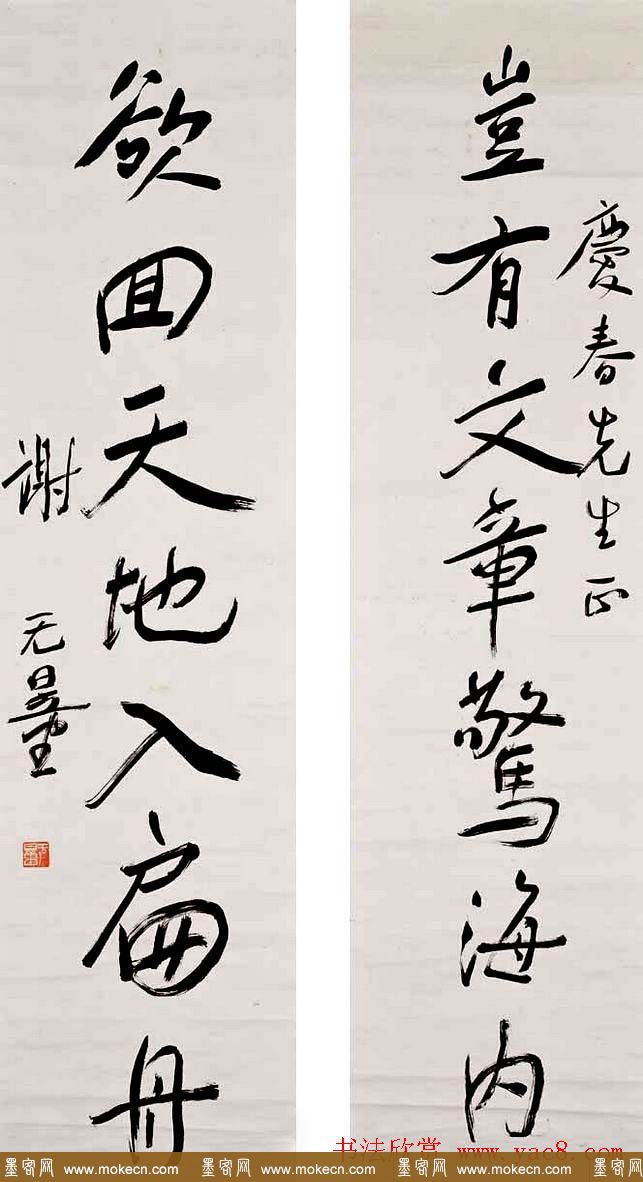 慶春先生正
豈有文章驚海内
欲回天地入扁舟
謝无量
无量
书法欣赏 www.yac8.com
墨客网 www.mokecn.com 墨客网 www.mokecn.com 墨客网 www.mokecn.com 墨客网 www.mokecn.com